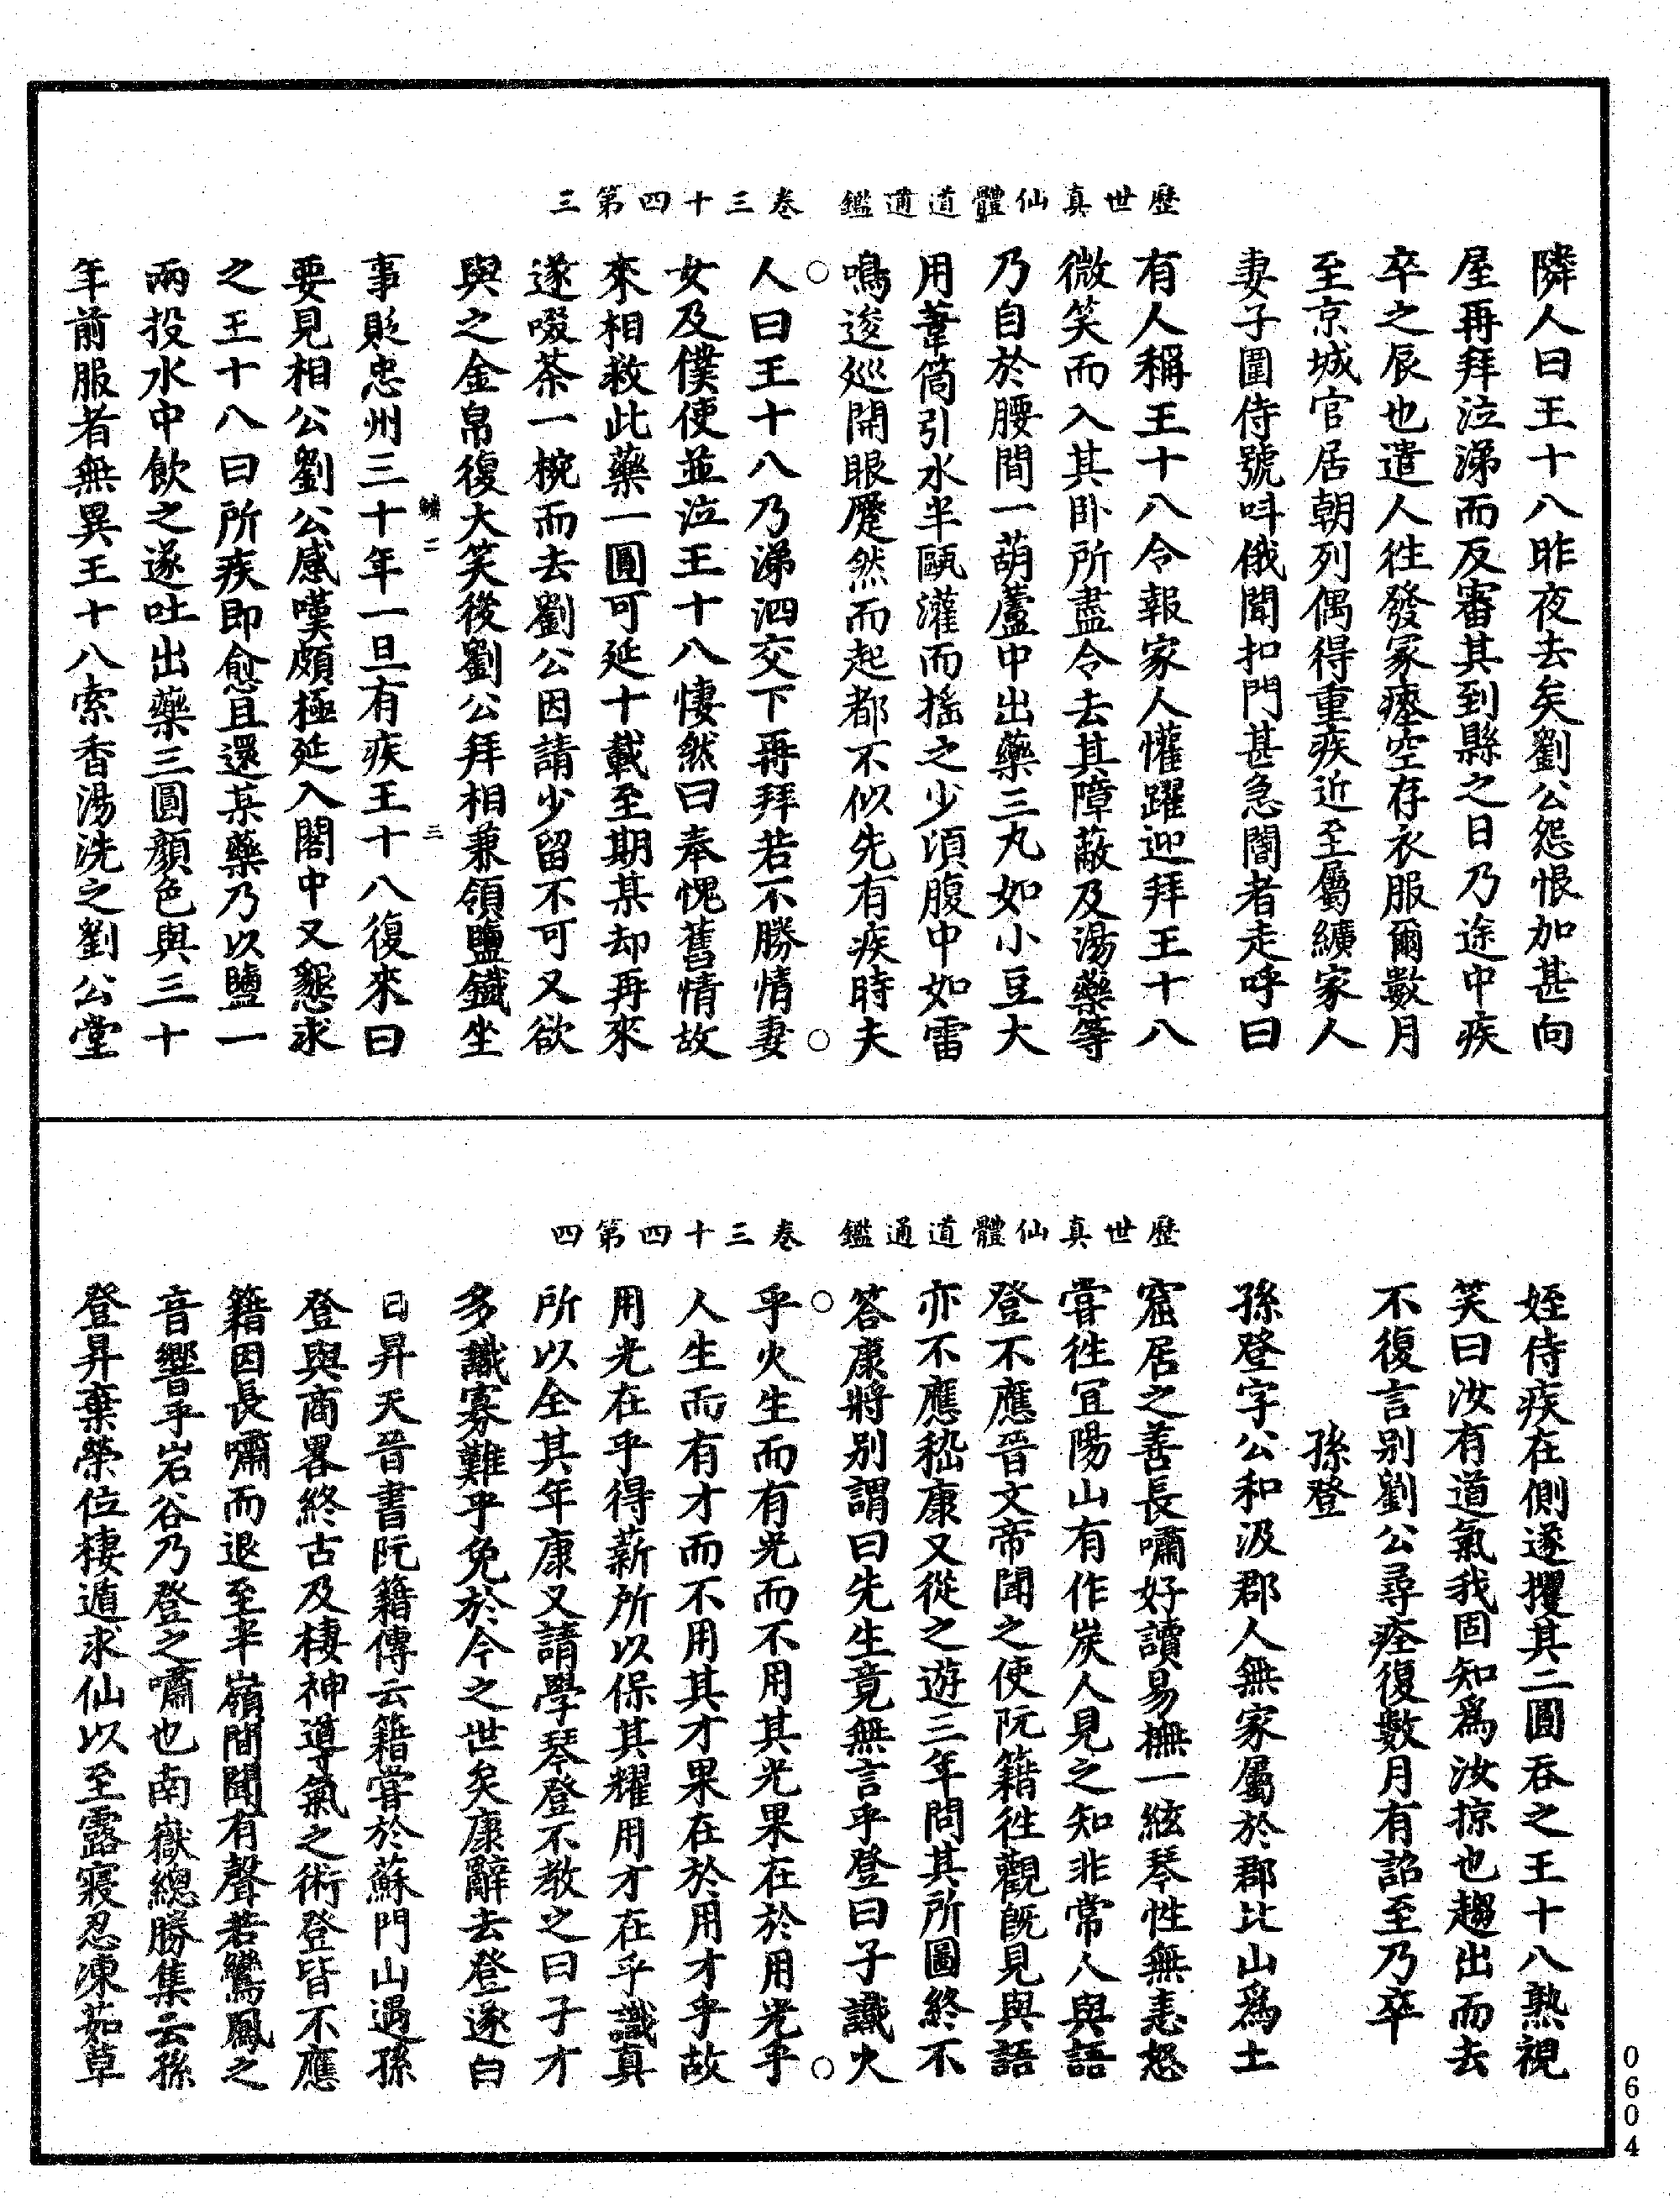 歷世真仙體道通鑑　卷三十四第三
隣人曰王十八昨夜去矣劉公怨恨加甚向
屋再拜泣涕而反審其到縣之日乃途中疾
卒之辰也遣人徃發冢瘞空存衣服爾數月
至京城官居朝列偶得重疾近至屬纊家人
妻子圍侍號呌俄聞扣門甚急閽者走呼曰
有人稱王十八令報家人懽躍迎拜王十八
微笑而入其卧所盡令去其障蔽及湯藥等
乃自於腰間一葫蘆中出藥三丸如小豆大
用葦筒引水半甌灌而搖之少湏腹中如雷
鳴逡巡開眼蹷然而起都不似先有疾時夫
人曰王十八乃涕泗交下再拜若不勝情妻
女及僕使並泣王十八悽然曰奉愧舊情故
來相救此藥一圓可延十載至期某却再來
遂啜茶一椀而去劉公因請少留不可又欲
與之金帛復大笑後劉公拜相兼領鹽鐵坐
鱗二　三
事貶忠州三十年一旦有疾王十八復來曰
要見相公劉公感嘆頗極延入閤中又懇求
之王十八曰所疾即愈且還某藥乃以鹽一
兩投水中飲之遂吐出藥三圓顏色與三十
年前服者無異王十八索香湯洗之劉公堂
歷世真仙體道通鑑　卷三十四第四
姪侍疾在側遂攫其二圓吞之王十八熟視
笑曰汝有道氣我固知爲汝掠也趨出而去
不復言别劉公尋痊復數月有詔至乃卒
孫登
孫登字公和汲郡人無家屬於郡北山爲土
窟居之善長嘯好讀易撫一絃琴性無恚怒
甞徃宜陽山有作炭人見之知非常人與語
登不應晉文帝聞之使阮籍徃觀旣見與語
亦不應嵇康又從之遊三年問其所圖終不
答康將别謂曰先生竟無言乎登曰子識火
乎火生而有光而不用其光果在於用光乎
人生而有才而不用其才果在於用才乎故
用光在乎得薪所以保其耀用才在乎識真
所以全其年康又請學琴登不教之曰子才
多識寡難乎免於今之世矣康辭去登遂白
日昇天晉書阮籍傳云籍甞於蘇門山遇孫
登與商畧終古及棲神導氣之術登皆不應
籍因長嘯而退至半嶺間聞有聲若鸞鳳之
音響乎岩谷乃登之嘯也南嶽總勝集云孫
登昇棄榮位棲遁求仙以至露寢忍凍茹草
0604